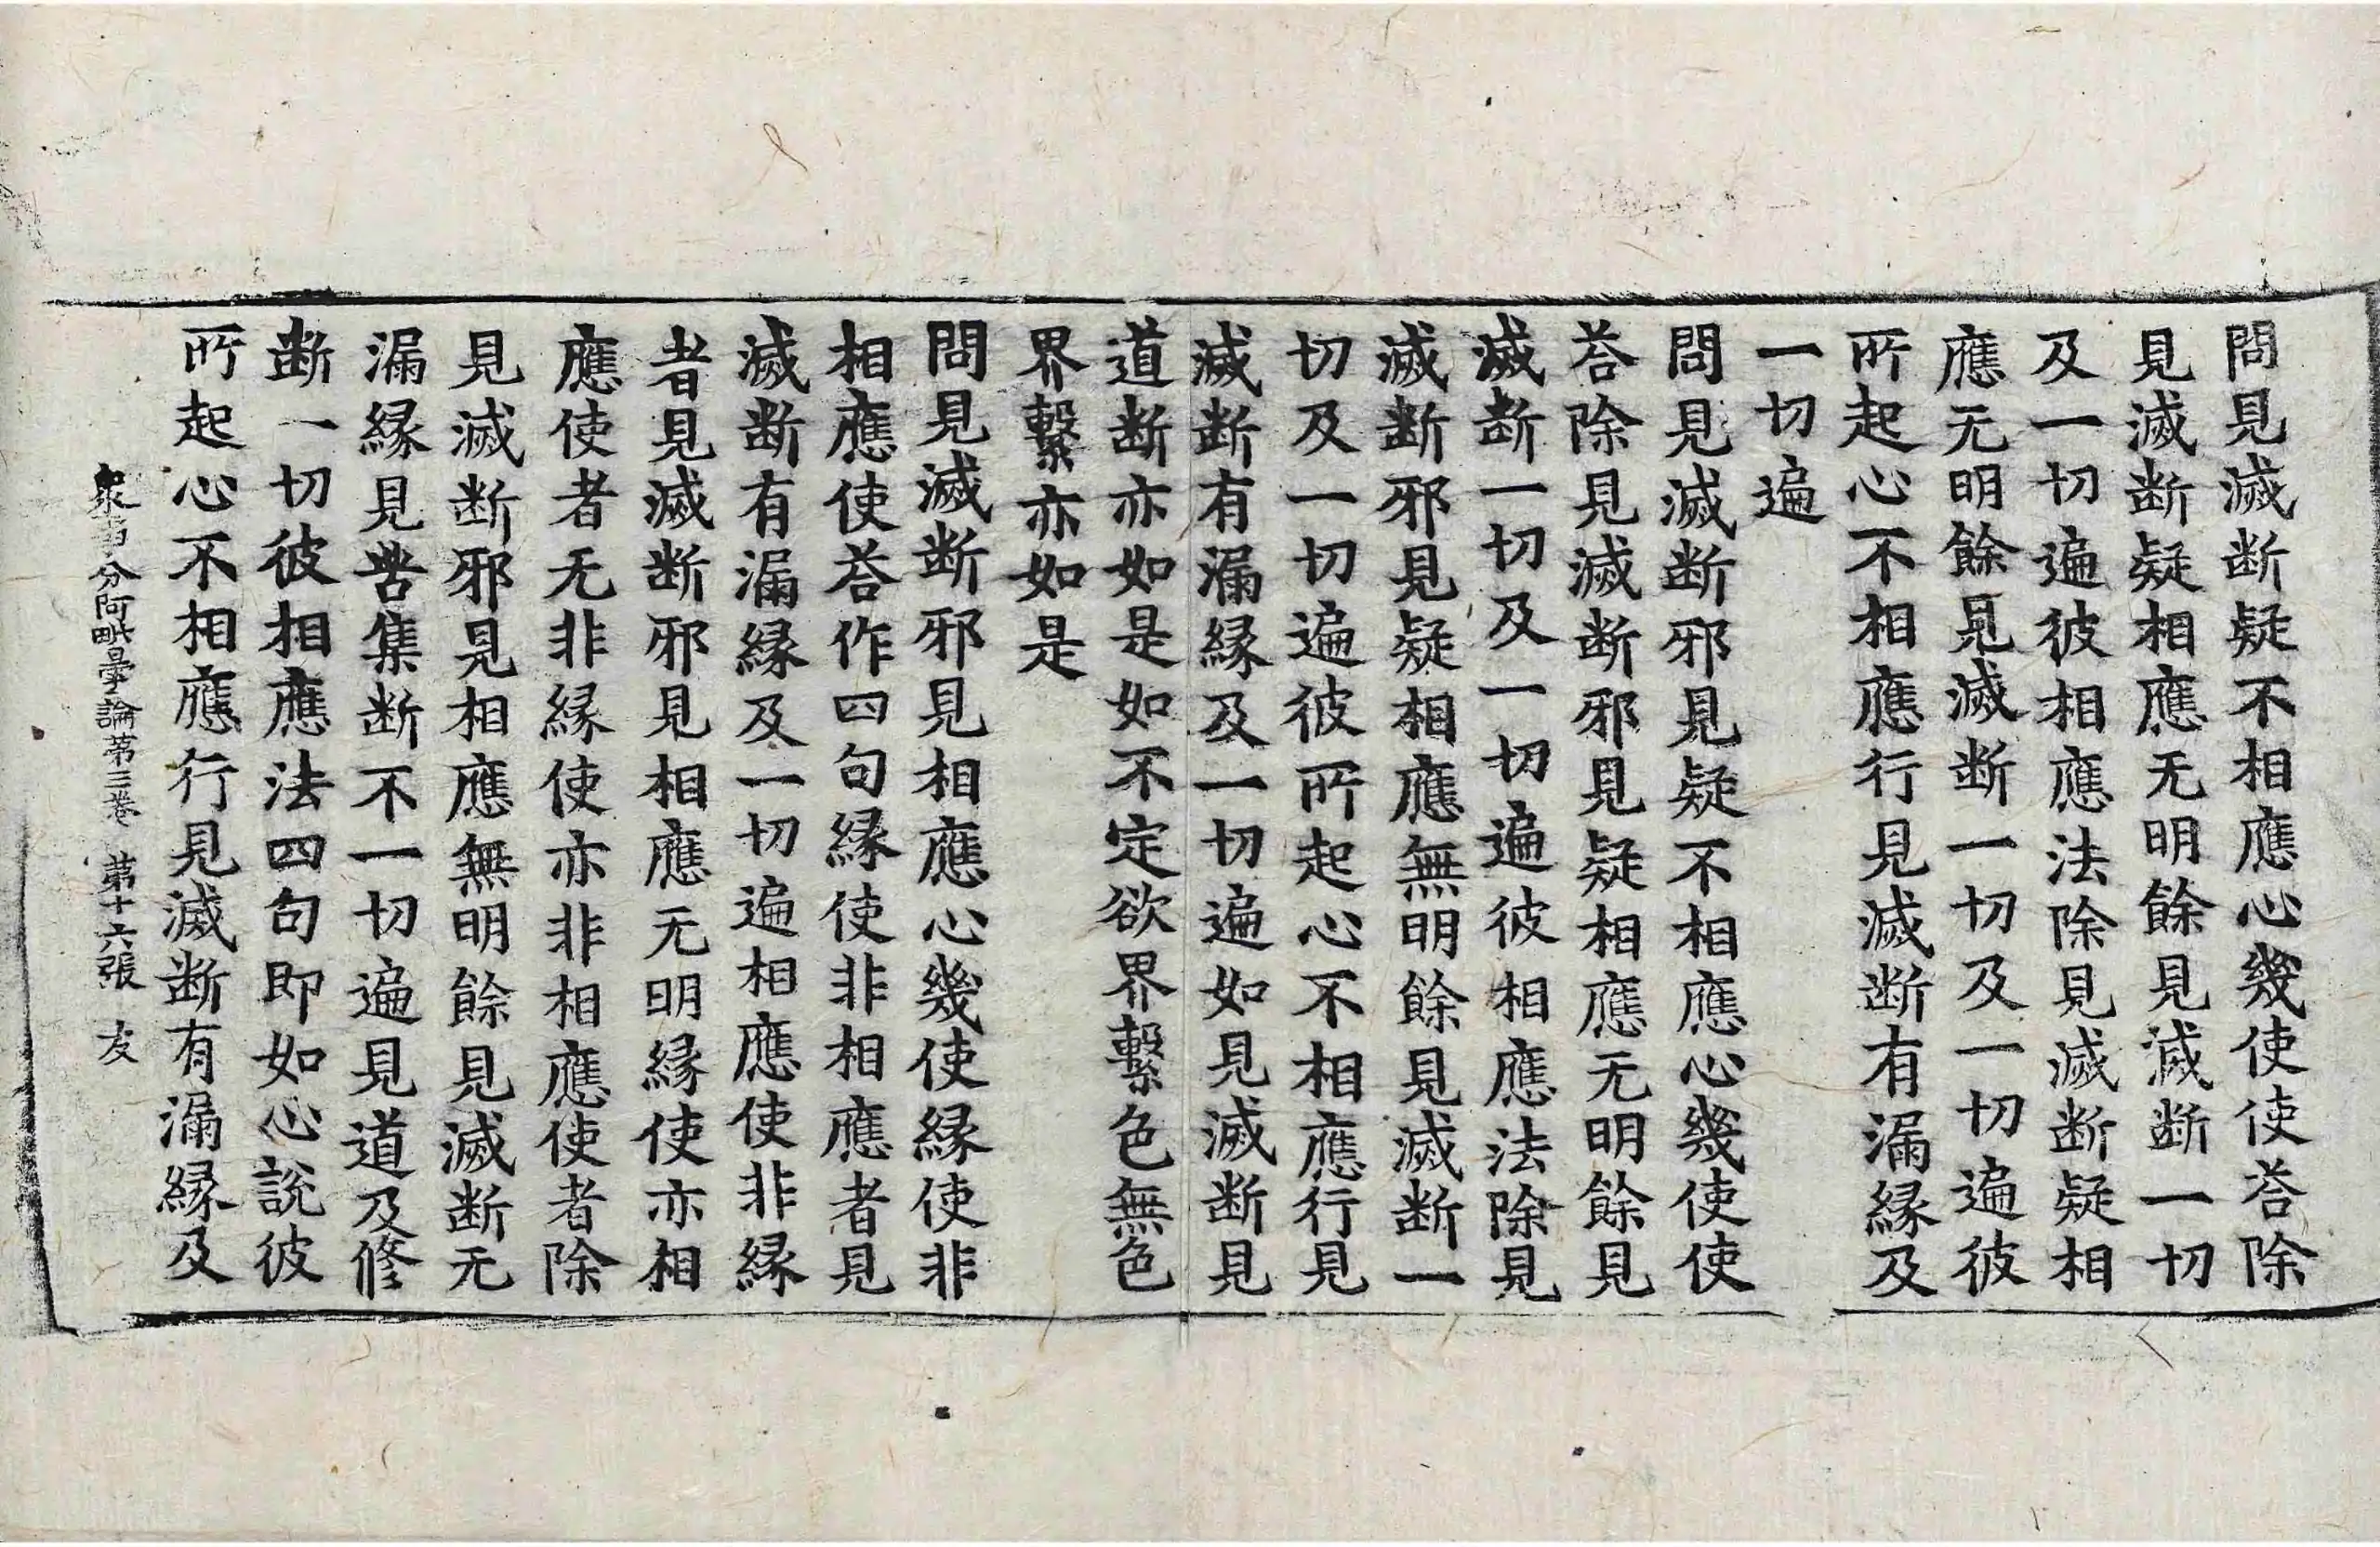 問見滅断疑不相應心幾使使荅除
見滅断疑相應无明餘見滅断一切
及一切遍彼相應法除見滅断疑相
應无明餘見滅断一切及一切遍彼
所起心不相應行見滅断有漏縁及
一切遍
問見滅断邪見疑不相應心幾使使
荅除見滅断邪見疑相應无明餘見
滅断一切及一切遍彼相應法除見
滅断邪見疑相應無明餘見滅断一
切及一切遍彼所起心不相應行見
滅断有漏縁及一切遍如見滅断見
道断亦如是如不定欲界繫色無色
界繫亦如是
問見滅断邪見相應心幾使縁使非
相應使荅作四句縁使非相應者見
滅断有漏縁及一切遍相應使非縁
者見滅断邪見相應无明縁使亦相
應使者无非縁使亦非相應使者除
見滅断邪見相應無明餘見滅断无
漏縁見苦集断不一切遍見道及修
断一切彼相應法四句即如心說彼
所起心不相應行見滅断有漏縁及
衆事分阿毗曇論苐三卷 苐十六張 友